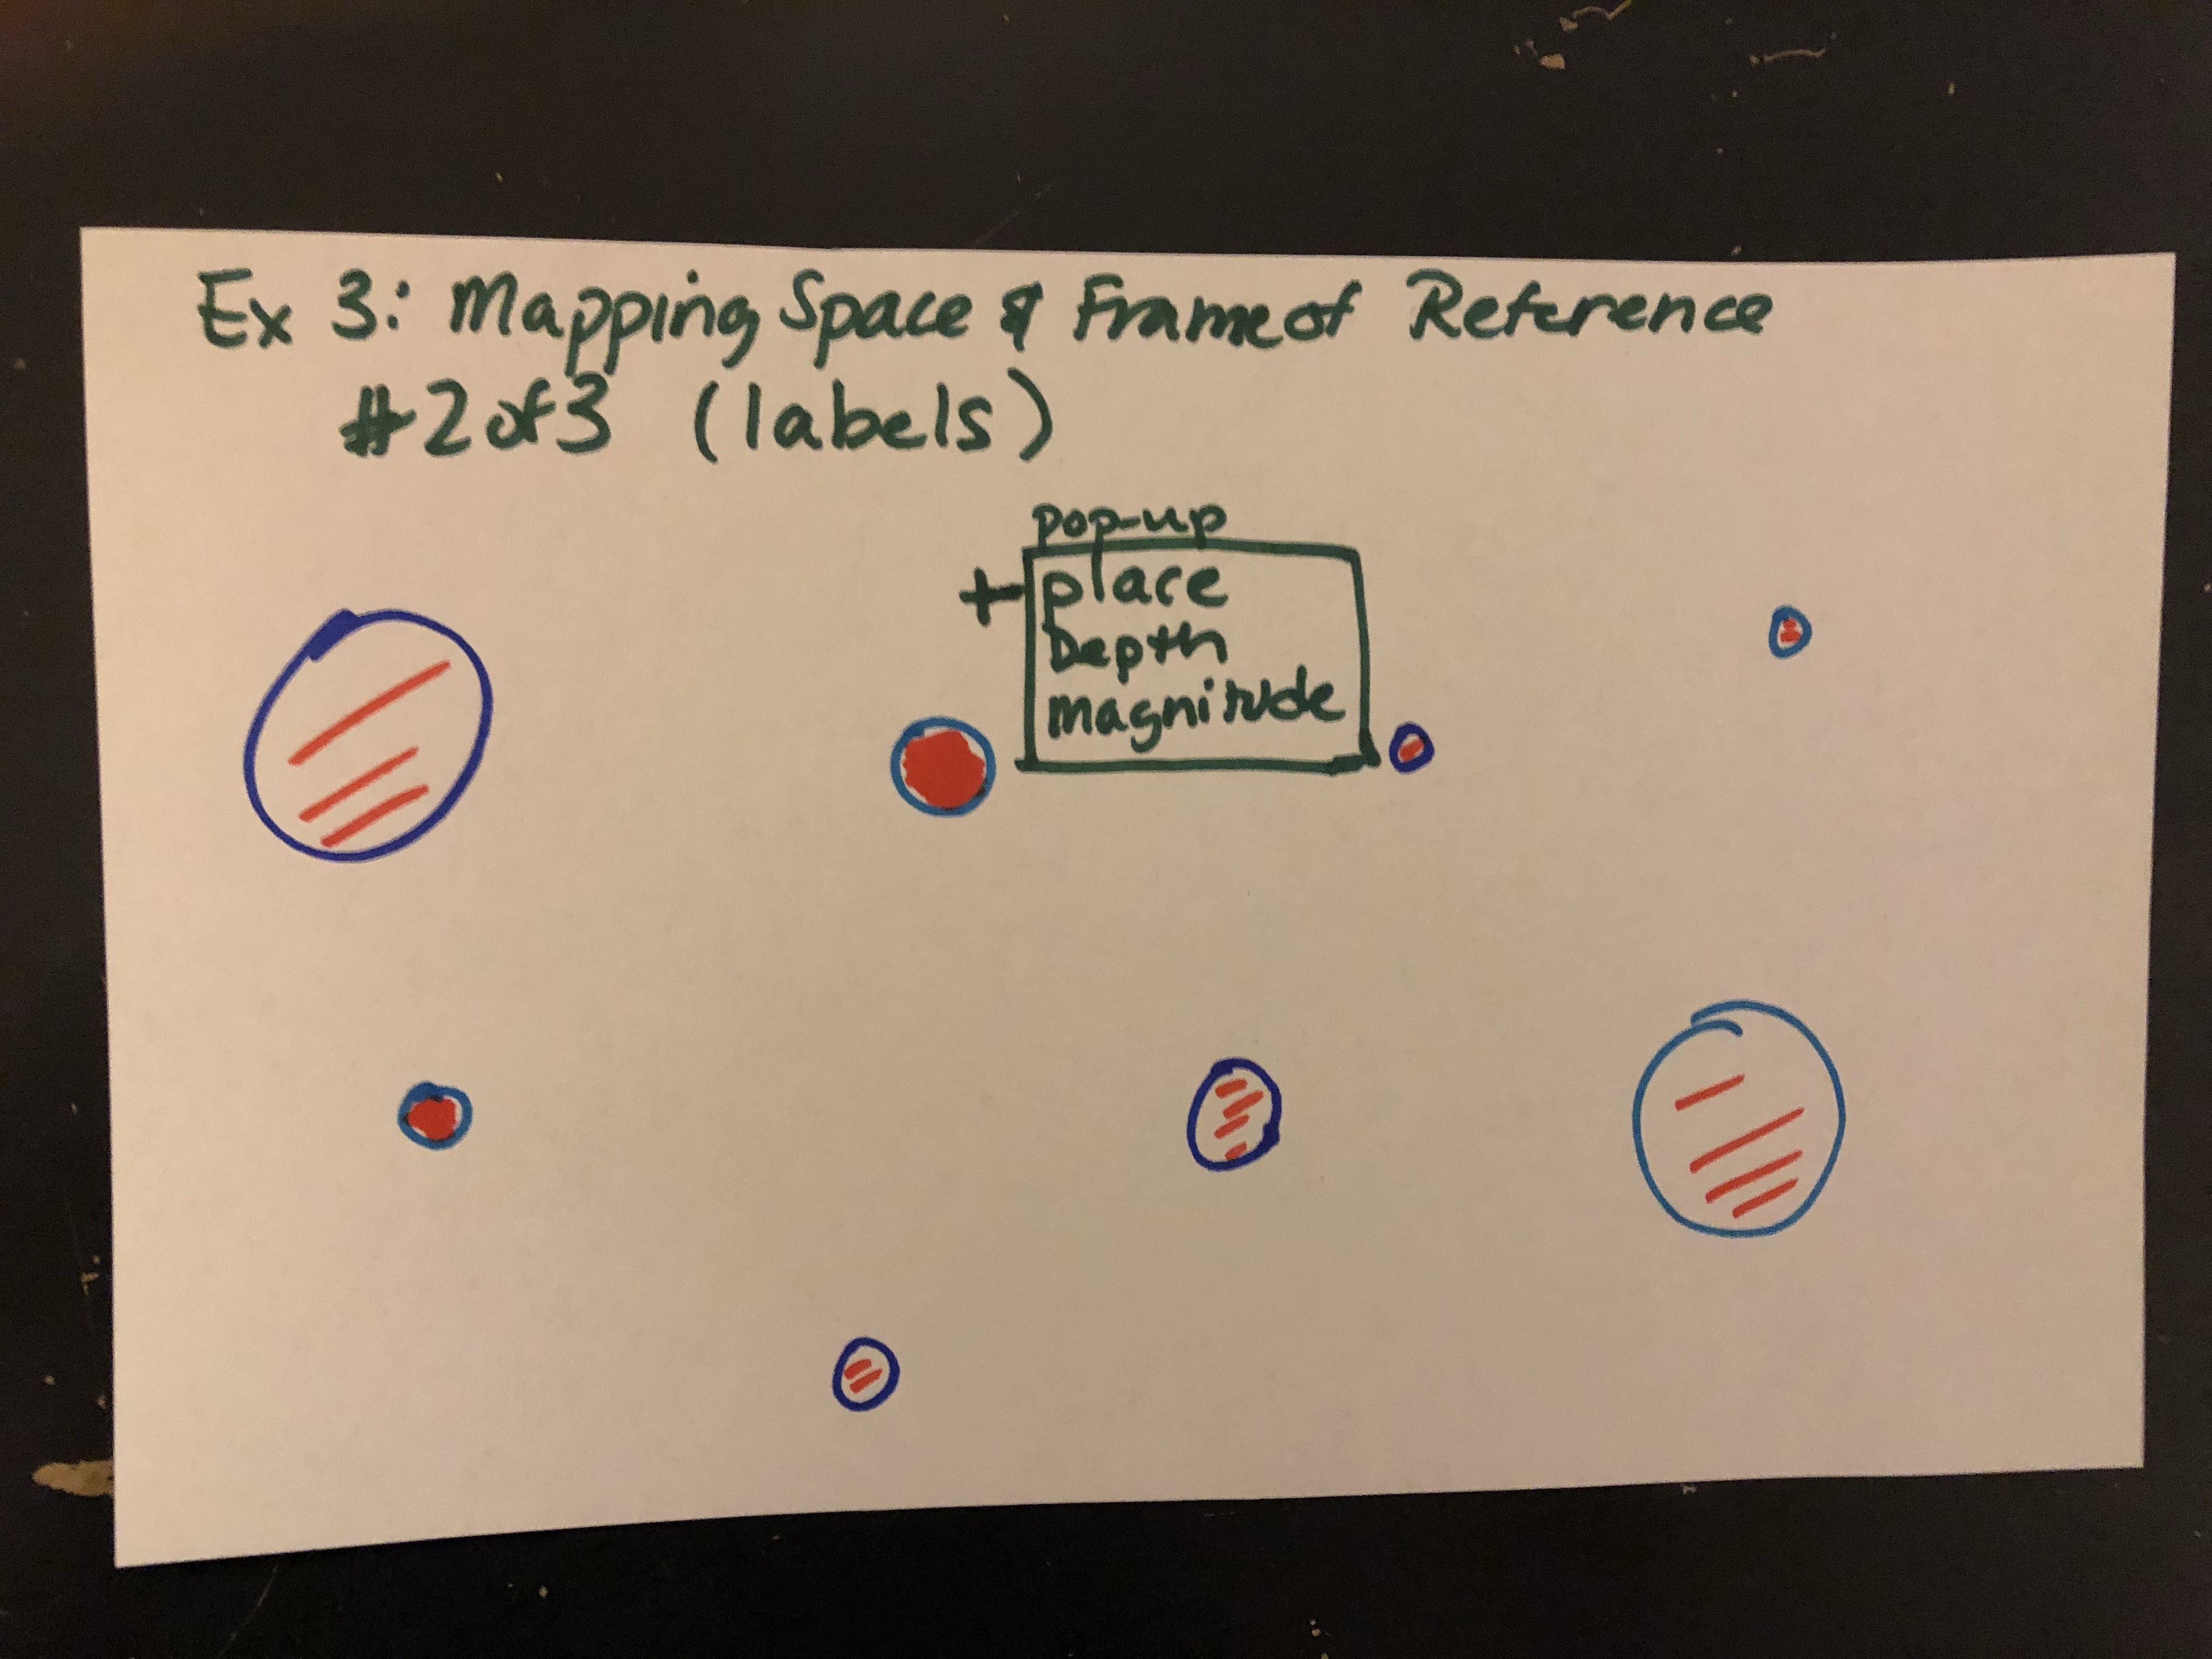 Ex 3: Mapping Space & Frame of Reference
#2 of 3 (labels)
pop-up
+ place
Depth
magnitude